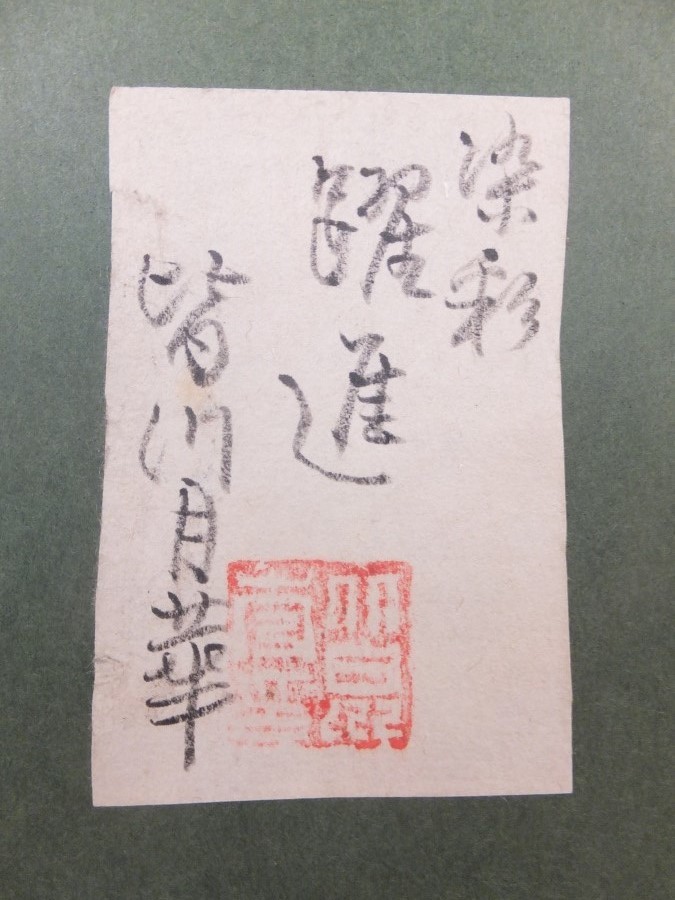 染彩
躍進
皆川月華